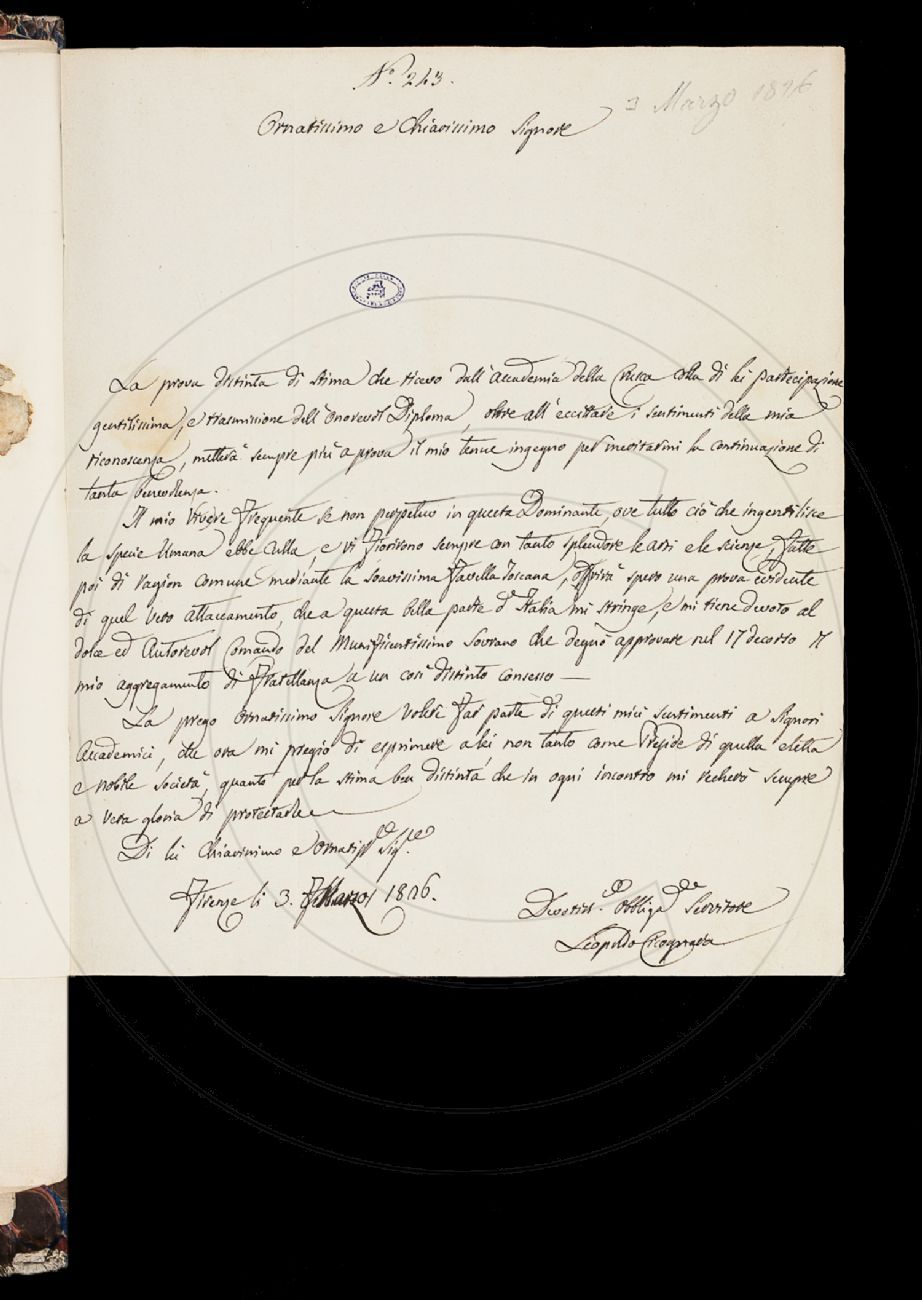 N.º 243.
3 Marzo 1826
Ornatissimo e Chiarissimo Signore
La prova distinta di stima che ricevo dall'Accademia della Crusca colla di lei partecipazione
gentilissima, e trasmissione dell'onorevol Diploma, oltre all'eccitare i sentimenti della mia
riconoscenza, metterà sempre più a prova il mio tenue ingegno per meritarmi la continuazione di
tanta benevolenza.
Il mio vivere frequente se non perpetuo in questa Dominante, ove tutto ciò che ingentilisce
la specie Umana ebbe culla, e vi fiorirono sempre con tanto splendore le arti e le scienze, fatte
poi di ragion comune mediante la soavissima favella Toscana, offrirà spero una prova evidente
di quel vero attaccamento, che a questa bella parte d'Italia mi stringe, e mi tiene devoto al
dolce ed Autorevol Comando del Munificentissimo Sovrano che degnò approvare nel 17 decorso il
mio aggregamento di Fratellanza a un così distinto consesso —
La prego Ornatissimo Signore voler far parte di questi miei sentimenti a Signori
Accademici, che ora mi pregio di esprimere a lei non tanto come Preside di quella eletta
e nobile società, quanto per la stima ben distinta che in ogni incontro mi recherò sempre
a vera gloria di protestarle
Di lei Chiarissimo e Ornatiss.º Sig.re
Firenze li 3. Marzo 1826.
Devotiss.º obbliga.º Servitore
Leopoldo Cicognara